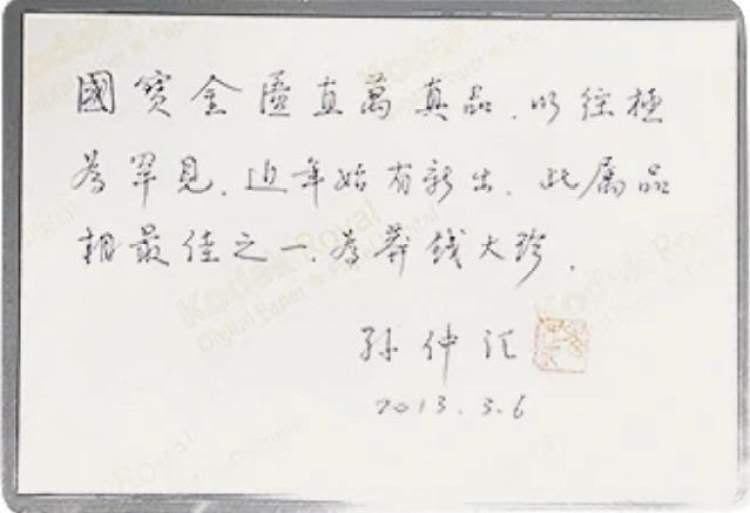 國寶金匱直萬真品.以往極
為罕見.近年始有新出.此属品
相最佳之一.為莽钱大珍.
孙仲汇
2013.3.6
Kodak Royal
Digital Paper